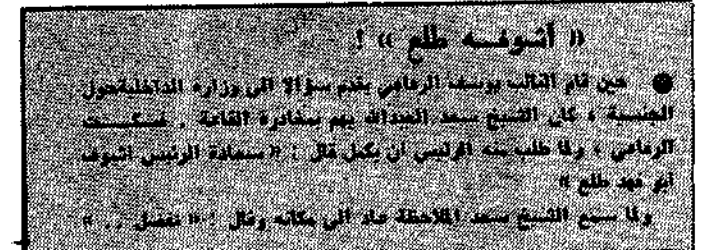 « أشوفه طلع » !
● حين قام النائب يوسف الرفاعي يقدم سؤالا الى وزارة الداخلية حول
الجنسية ، كان الشيخ سعد العبدالله يهم بمغادرة القاعة . فسكت
الرفاعي ، ولما طلب منه الرئيس أن يكمل قال : « سعادة الرئيس اشوف
ابو فهد طلع »
ولما سمع الشيخ سعد الملاحظة عاد الى مكانه وقال : « تفضل .. »